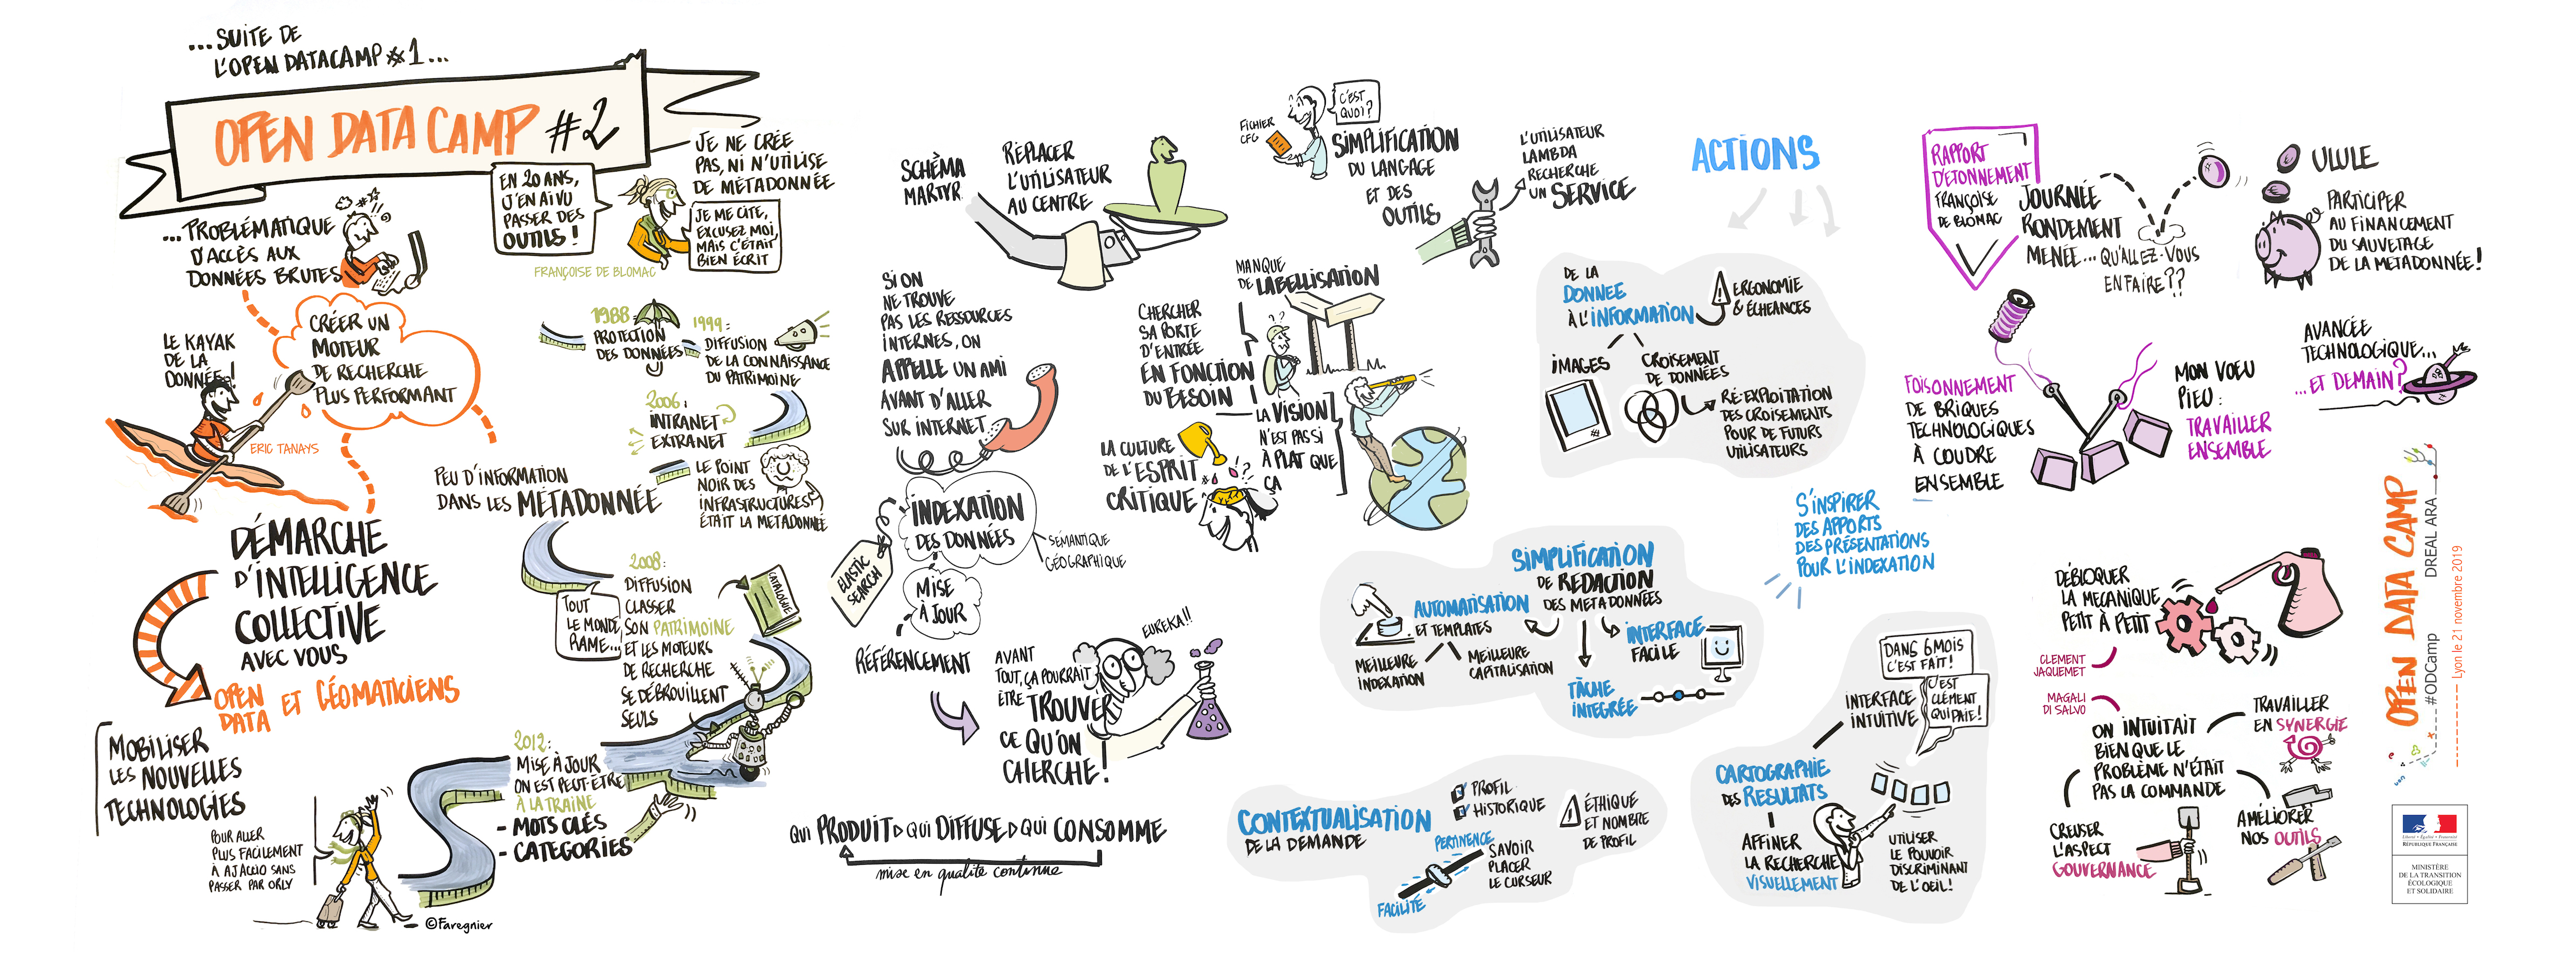 ...SUITE DE
L'OPEN DATACAMP #1...
OPEN DATA CAMP #2
...PROBLÉMATIQUE
D'ACCÈS AUX
DONNÉES BRUTES
EN 20 ANS,
J'EN AI VU
PASSER DES
OUTILS !
JE NE CRÉE
PAS, NI N'UTILISE
DE MÉTADONNÉE
JE ME CITE,
EXCUSEZ MOI,
MAIS C'ÉTAIT
BIEN ÉCRIT
FRANÇOISE DE BLOMAC
LE KAYAK
DE LA
DONNÉE !
ERIC TANAYS
CRÉER UN
MOTEUR
DE RECHERCHE
PLUS PERFORMANT
DÉMARCHE
D'INTELLIGENCE
COLLECTIVE
AVEC VOUS
OPEN
DATA ET GÉOMATICIENS
MOBILISER
LES NOUVELLES
TECHNOLOGIES
POUR ALLER
PLUS FACILEMENT
À AJACCIO SANS
PASSER PAR ORLY
©Faregnier
1988 :
PROTECTION
DES DONNÉES
1999 :
DIFFUSION
DE LA CONNAISSANCE
DU PATRIMOINE
2006 :
INTRANET
EXTRANET
PEU D'INFORMATION
DANS LES MÉTADONNÉE
LE POINT
NOIR DES
INFRASTRUCTURES
ÉTAIT LA METADONNÉE
TOUT
LE MONDE
RAME...
2008 :
DIFFUSION
CLASSER
SON PATRIMOINE
ET LES MOTEURS
DE RECHERCHE
SE DÉBROUILLENT
SEULS
CATALOGUE
2012 :
MISE À JOUR
ON EST PEUT-ÊTRE
À LA TRAINE
- MOTS CLÉS
- CATEGORIES
SCHÉMA
MARTYR
REPLACER
L'UTILISATEUR
AU CENTRE
FICHIER
CFG
C'EST
QUOI ?
SIMPLIFICATION
DU LANGAGE
ET DES
OUTILS
L'UTILISATEUR
LAMBDA
RECHERCHE
UN SERVICE
SI ON
NE TROUVE
PAS LES RESSOURCES
INTERNES, ON
APPELLE UN AMI
AVANT D'ALLER
SUR INTERNET
MANQUE
DE LABELLISATION
CHERCHER
SA PORTE
D'ENTRÉE
EN FONCTION
DU BESOIN
LA VISION
N'EST PAS SI
À PLAT QUE
ÇA
LA CULTURE
DE L'ESPRIT
CRITIQUE
INDEXATION
DES DONNÉES
SÉMANTIQUE
GÉOGRAPHIQUE
ELASTIC
SEARCH
MISE
À JOUR
RÉFÉRENCEMENT
AVANT
TOUT, ÇA POURRAIT
ÊTRE TROUVER
CE QU'ON
CHERCHE !
EUREKA !!
QUI PRODUIT ▷ QUI DIFFUSE ▷ QUI CONSOMME
mise en qualité continue
ACTIONS
DE LA
DONNEE
À L'INFORMATION
ERGONOMIE
& ÉCHEANCES
IMAGES
CROISEMENT
DE DONNÉES
RÉ-EXPLOITATION
DES CROISEMENTS
POUR DE FUTURS
UTILISATEURS
S'INSPIRER
DES APPORTS
DES PRÉSENTATIONS
POUR L'INDEXATION
SIMPLIFICATION
DE RÉDACTION
DES METADONNÉES
AUTOMATISATION
ET TEMPLATES
MEILLEURE
INDEXATION
MEILLEURE
CAPITALISATION
INTERFACE
FACILE
TÂCHE
INTÉGRÉE
CONTEXTUALISATION
DE LA DEMANDE
PROFIL
HISTORIQUE
ÉTHIQUE
ET NOMBRE
DE PROFIL
PERTINENCE
FACILITÉ
SAVOIR
PLACER
LE CURSEUR
DANS 6 MOIS
C'EST FAIT !
C'EST
CLÉMENT
QUI PAIE !
INTERFACE
INTUITIVE
CARTOGRAPHIE
DES RESULTATS
AFFINER
LA RECHERCHE
VISUELLEMENT
UTILISER
LE POUVOIR
DISCRIMINANT
DE L'OEIL !
RAPPORT
D'ETONNEMENT
FRANÇOISE
DE BLOMAC
JOURNÉE
RONDEMENT
MENÉE... QU'ALLEZ-VOUS
EN FAIRE ??
ULULE
PARTICIPER
AU FINANCEMENT
DU SAUVETAGE
DE LA METADONNÉE !
FOISONNEMENT
DE BRIQUES
TECHNOLOGIQUES
À COUDRE
ENSEMBLE
MON VOEU
PIEU :
TRAVAILLER
ENSEMBLE
AVANCÉE
TECHNOLOGIQUE...
...ET DEMAIN ?
DÉBLOQUER
LA MECANIQUE
PETIT À PETIT
CLEMENT
JAQUEMET
MAGALI
DI SALVO
ON INTUITAIT
BIEN QUE LE
PROBLÈME N'ÉTAIT
PAS LA COMMANDE
TRAVAILLER
EN SYNERGIE
CREUSER
L'ASPECT
GOUVERNANCE
AMÉLIORER
NOS OUTILS
OPEN DATA CAMP
#ODCamp
DREAL ARA
Lyon le 21 novembre 2019
Liberté • Égalité • Fraternité
RÉPUBLIQUE FRANÇAISE
MINISTÈRE
DE LA TRANSITION
ÉCOLOGIQUE
ET SOLIDAIRE